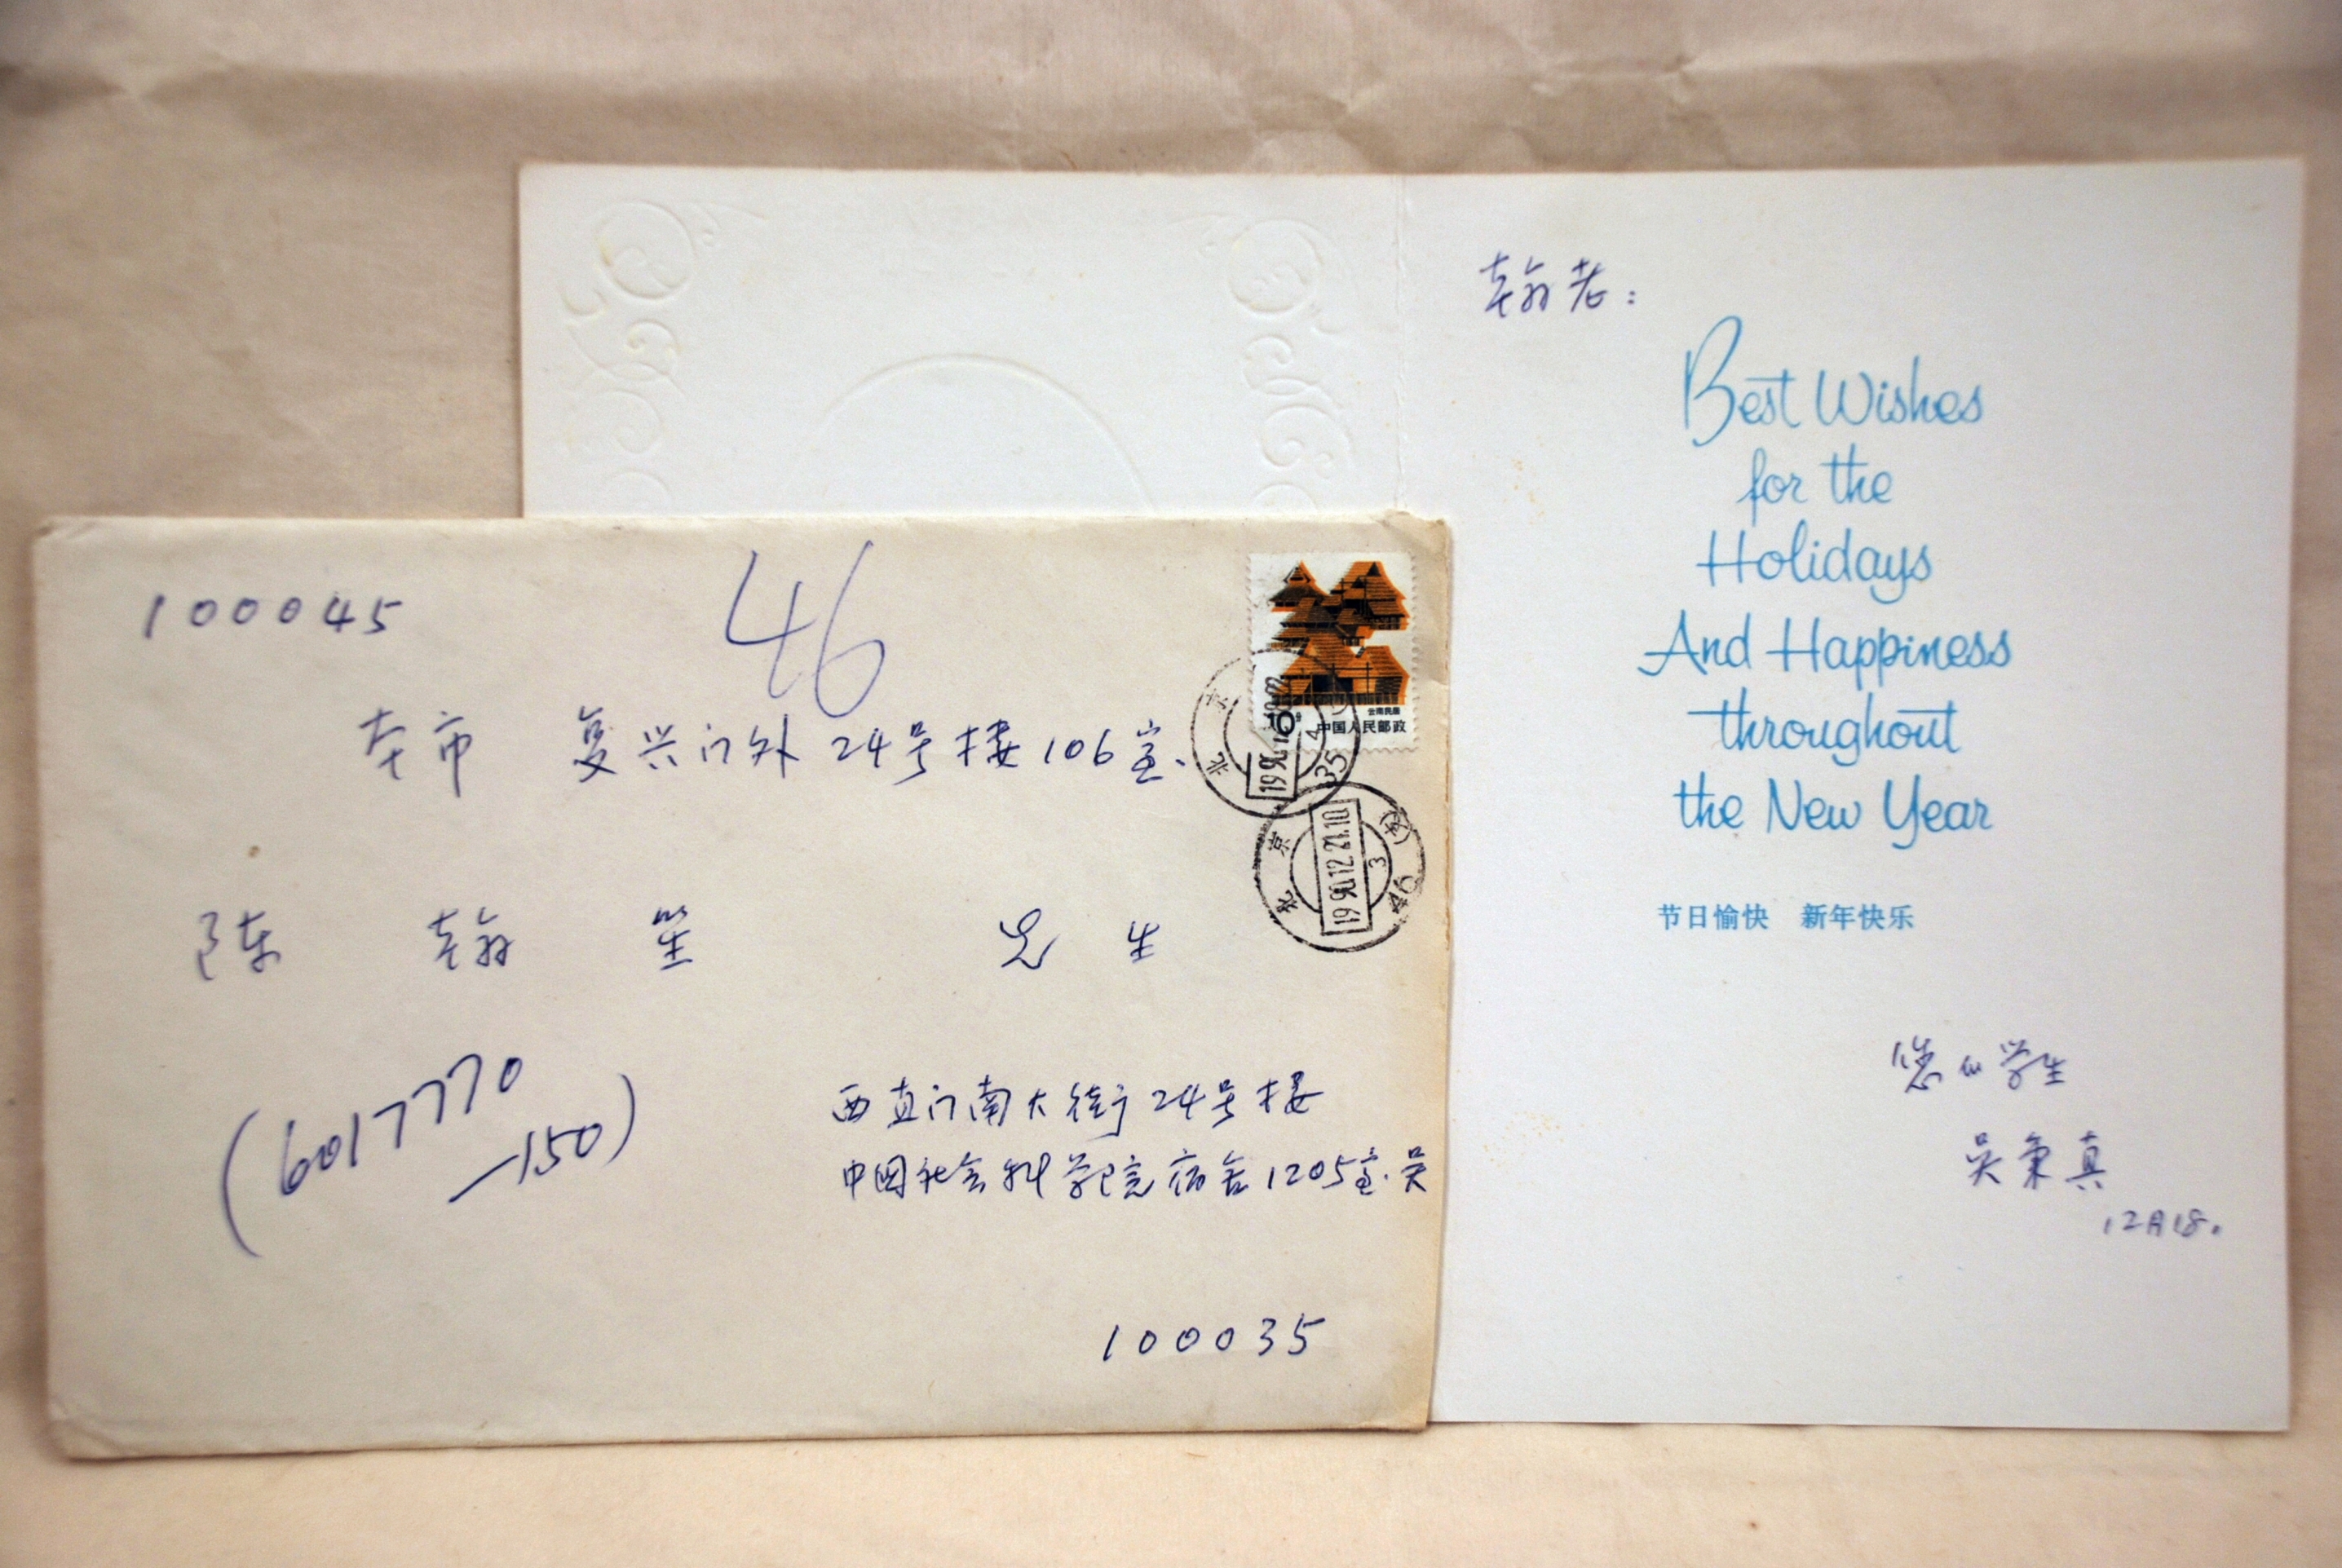 100045
46
本市 复兴门外24号楼106室.
陈 翰 笙 先 生
(6017770
—150)
西直门南大街24号楼
中国社会科学院宿舍1205室.吴
100035
云南民居
10分
中国人民邮政
北京
35
北京
1990.12.21.10
3
46
翰老:
Best Wishes
for the
Holidays
And Happiness
throughout
the New Year
节日愉快 新年快乐
您的学生
吴秉真
12月18.